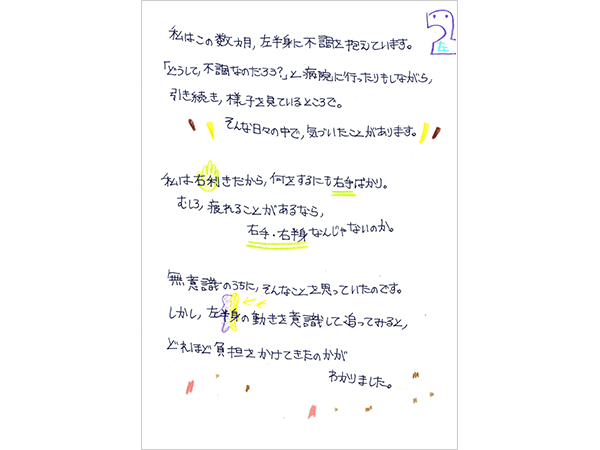 左
私はこの数カ月，左半身に不調を抱えています。
「どうして，不調なのだろう？」と病院に行ったりもしながら，
引き続き，様子を見ているところで。
そんな日々の中で，気づいたことがあります。
私は右利きだから，何をするにも右手ばかり。
むしろ，疲れることがあるなら，
右手・右半身なんじゃないのか。
無意識のうちに，そんなことを思っていたのです。
しかし，左半身の動きを意識して追ってみると，
どれほど負担をかけてきたのかが
わかりました。